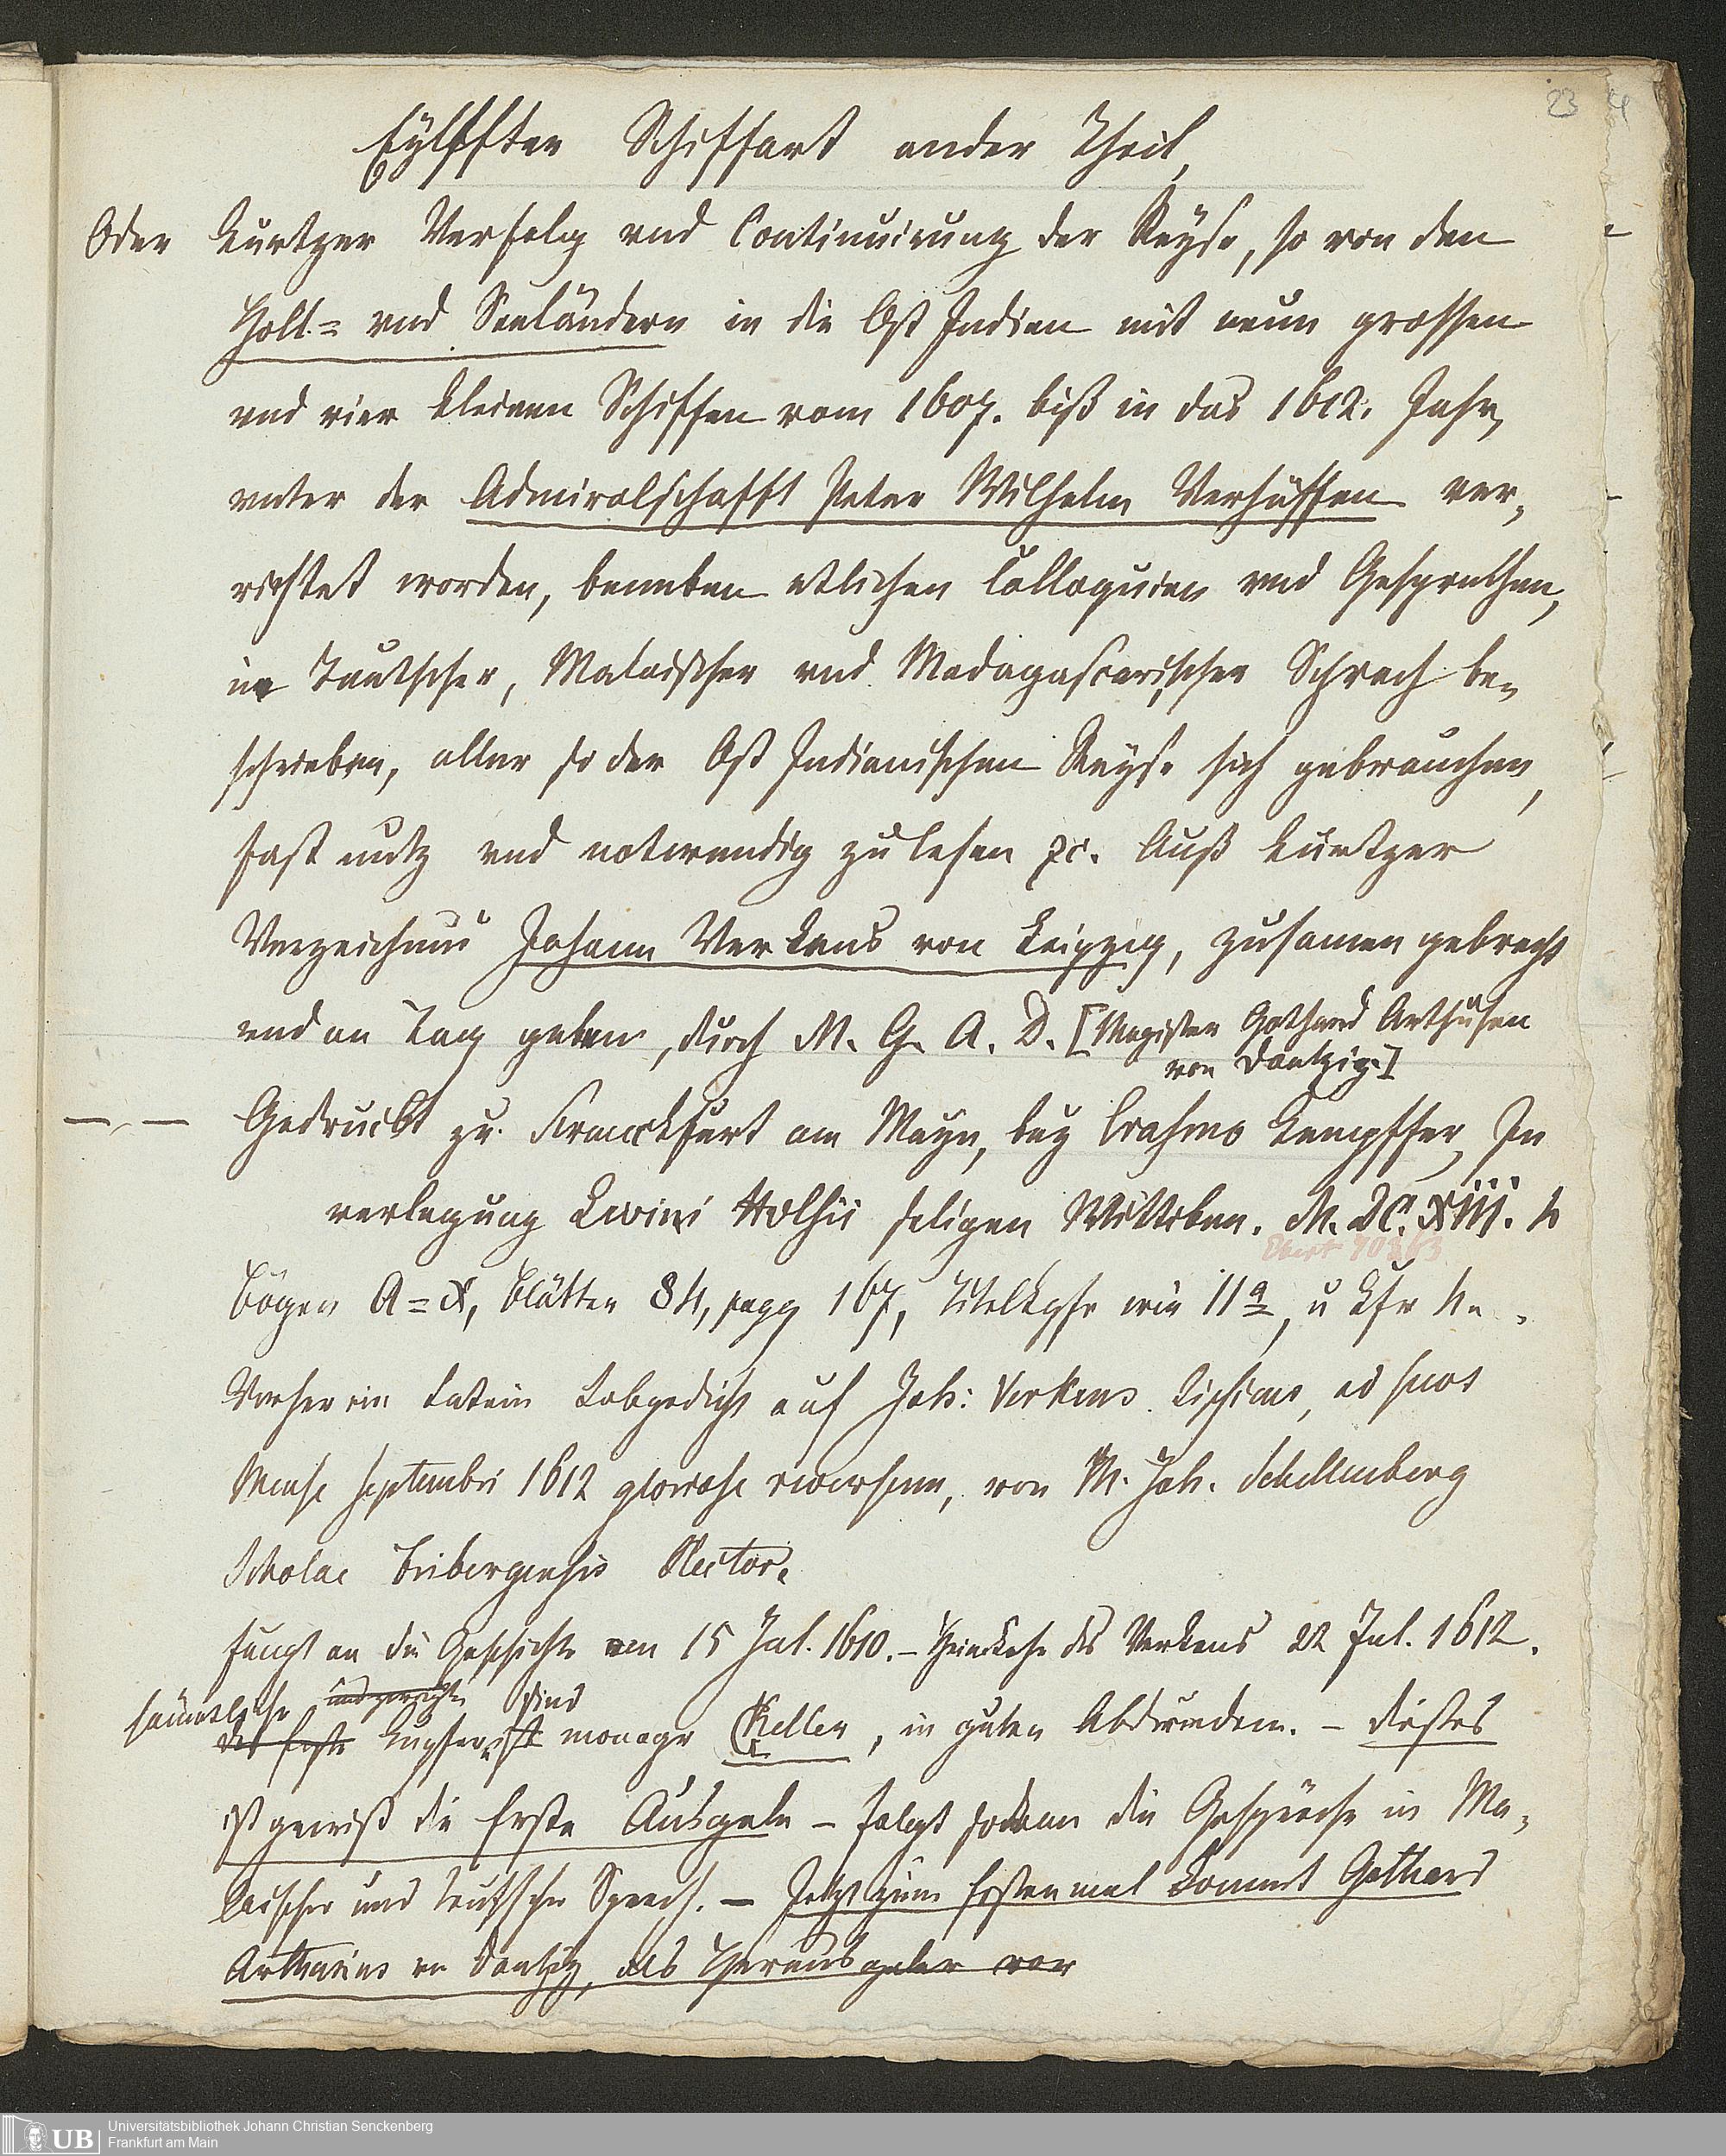 23
Eylffter Schiffart ander Theil,
Oder Kurtzer Verfolg vnd Continuirung der Reyse, so von den
Holl.= vnd Seeländern in die Ost Indien mit neun grossen
vnd vier kleinen Schiffen vom 1607. biß in das 1612. Jahr,
vnter der Admiralschafft Peter Wilhelm Verhüffen ver,
richtet worden, beneben etlichen Colloquien vnd Gesprechen,
in Teutscher, Malaischer vnd Madagascarischer Sprach be,
schrieben, allen so der Ost Indianischen Reyse sich gebrauchen,
fast nutz vnd notwendig zu lesen ꝛc. Auß kurtzer
Verzeichnus Johann Verkens von Leipzig, zusamen gebracht
vnd an Tag geben, durch M. G. A. D. [Magister Gothard Arthusen
von Dantzig.]
— — Gedruckt zu Franckfurt am Mayn, bey Erasmo Kempffer, In
verlegung Levini Hulsii seligen Wittiben. M. DC. XIII. 4
Ebert
Bögen A=X, Blätter 84, pagg 167, Titelkpfr wie 11a, u Kfr
Vorher ein Latein Lobgedicht auf Joh: Verkens Lipsicus, ad suos
Mense Septembri 1612 gloriose reversum, von M. Joh. Schellenberg
Scholae Fribergensis Rector.
fängt an die Geschichte vom 15 Jul. 1610. – Heimkehr des Verkens 22 Jul. 1612.
sämtliche und sind
das Erste Kupfer ist monogr Keller, in guten Abdrücken. – dieses
ist gewiß die Erste Ausgabe – folgt sodann die Gespräche in Ma,
laischer und teutscher Sprach. – Jetzt zum Erstenmal kommt Gothard
Arthusius von Dantzig, als Herausgeber vor
Universitätsbibliothek Johann Christian Senckenberg
Frankfurt am Main
UB